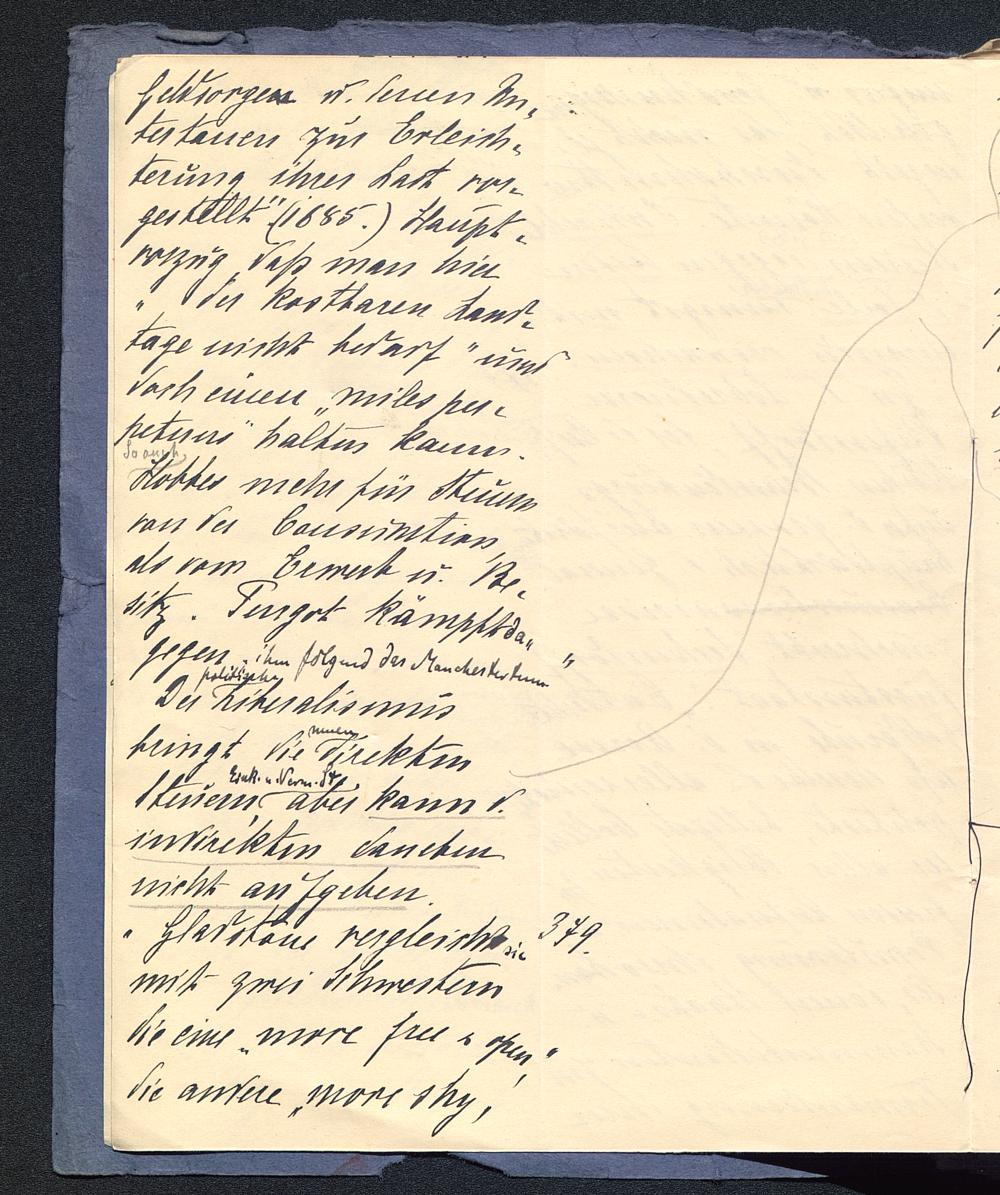 Geldsorgen u. deren In-
testanen zur Erleich-
terung ihrer Last vor-
gestellt" (1685.) Haupt-
vorzug, daß man hier
" der kostbaren Land-
tage nicht bedarf" und
doch einen "miles per-
petuus" halten kann.
So auch
Hobbes mehr für Steuern
von der Consumtion
als vom Erwerb u. Be-
sitz. Turgot kämpft da-
gegen, ihm folgend das Manchestertum
politische
Der Liberalismus
neuen
bringt die direkten
Eink. u. Verm. St.
Steuern, aber kann d.
indirekten daneben
nicht aufgeben.
" Gladstone vergleicht sie 379.
mit zwei Schwestern
die eine "more free & open,"
die andere "more shy,